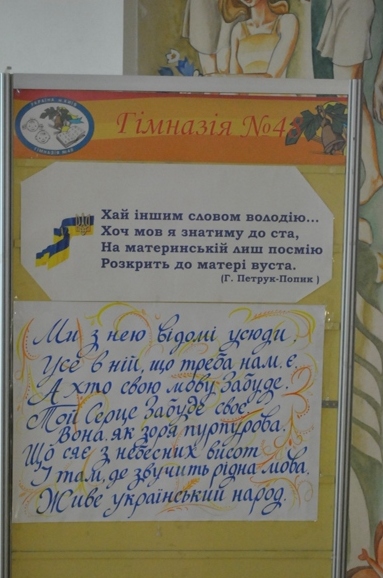 Гімназія №43
Хай іншим словом володію...
Хоч мов я знатиму до ста,
На материнській лиш посмію
Розкрить до матері вуста.
(Г. Петрук-Попик )
Ми з нею відомі усюди.
Усе в ній, що треба нам, є.
А хто свою мову забуде.
Той серце забуде своє
Вона, як зоря пурпурова.
Що сяє з небесних висот
І там, де звучить рідна мова.
Живе український народ.